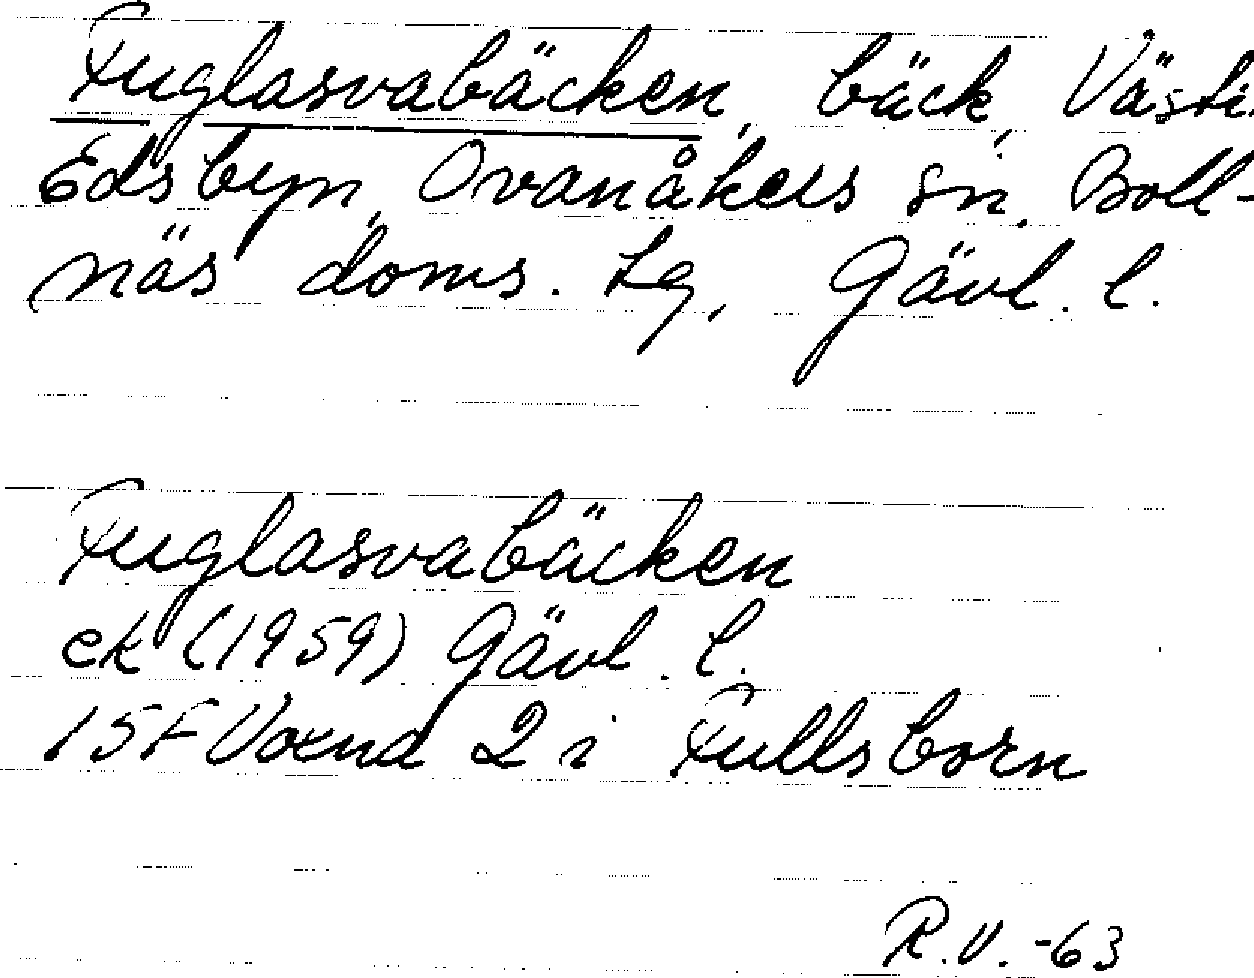 Fuglasvabäcken, bäck, Västi
Edsbyn, Ovanåkers sn. Boll-
näs doms. Lg, Gävl. l.
Fuglasvabäcken
ek (1959) Gävl. l.
15F Voxna 2 i Fullsborn
R.V. -63